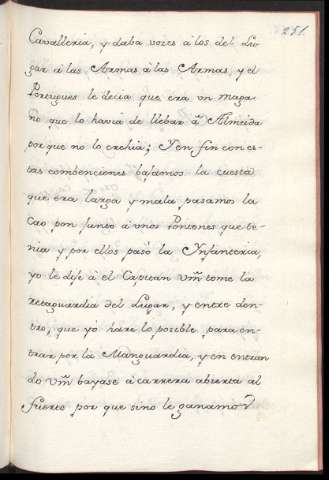 251.
Cavalleria, y daba vozes à los del Lu
gar à las Armas à las Armas, y el
Portugues le decia que era vn maga
ño que lo havia de llebar à Almeida
porque no lo crehia; Y en fin con es
tas combenciones bajamos la cuesta
que era larga y mala, pasamos la
Cao por junto à vnos Pontones que te
nia y por ellos pasò la Infanteria,
yo le dije à el Capitan Vm̃ tome la
retaguardia del Lugar, y entre den
tro, que yo hare lo posible para en
trar por la Manguardia, y en entran
do Vm̃ bayase à carrera abierta al
fuerte por que sino le ganamos